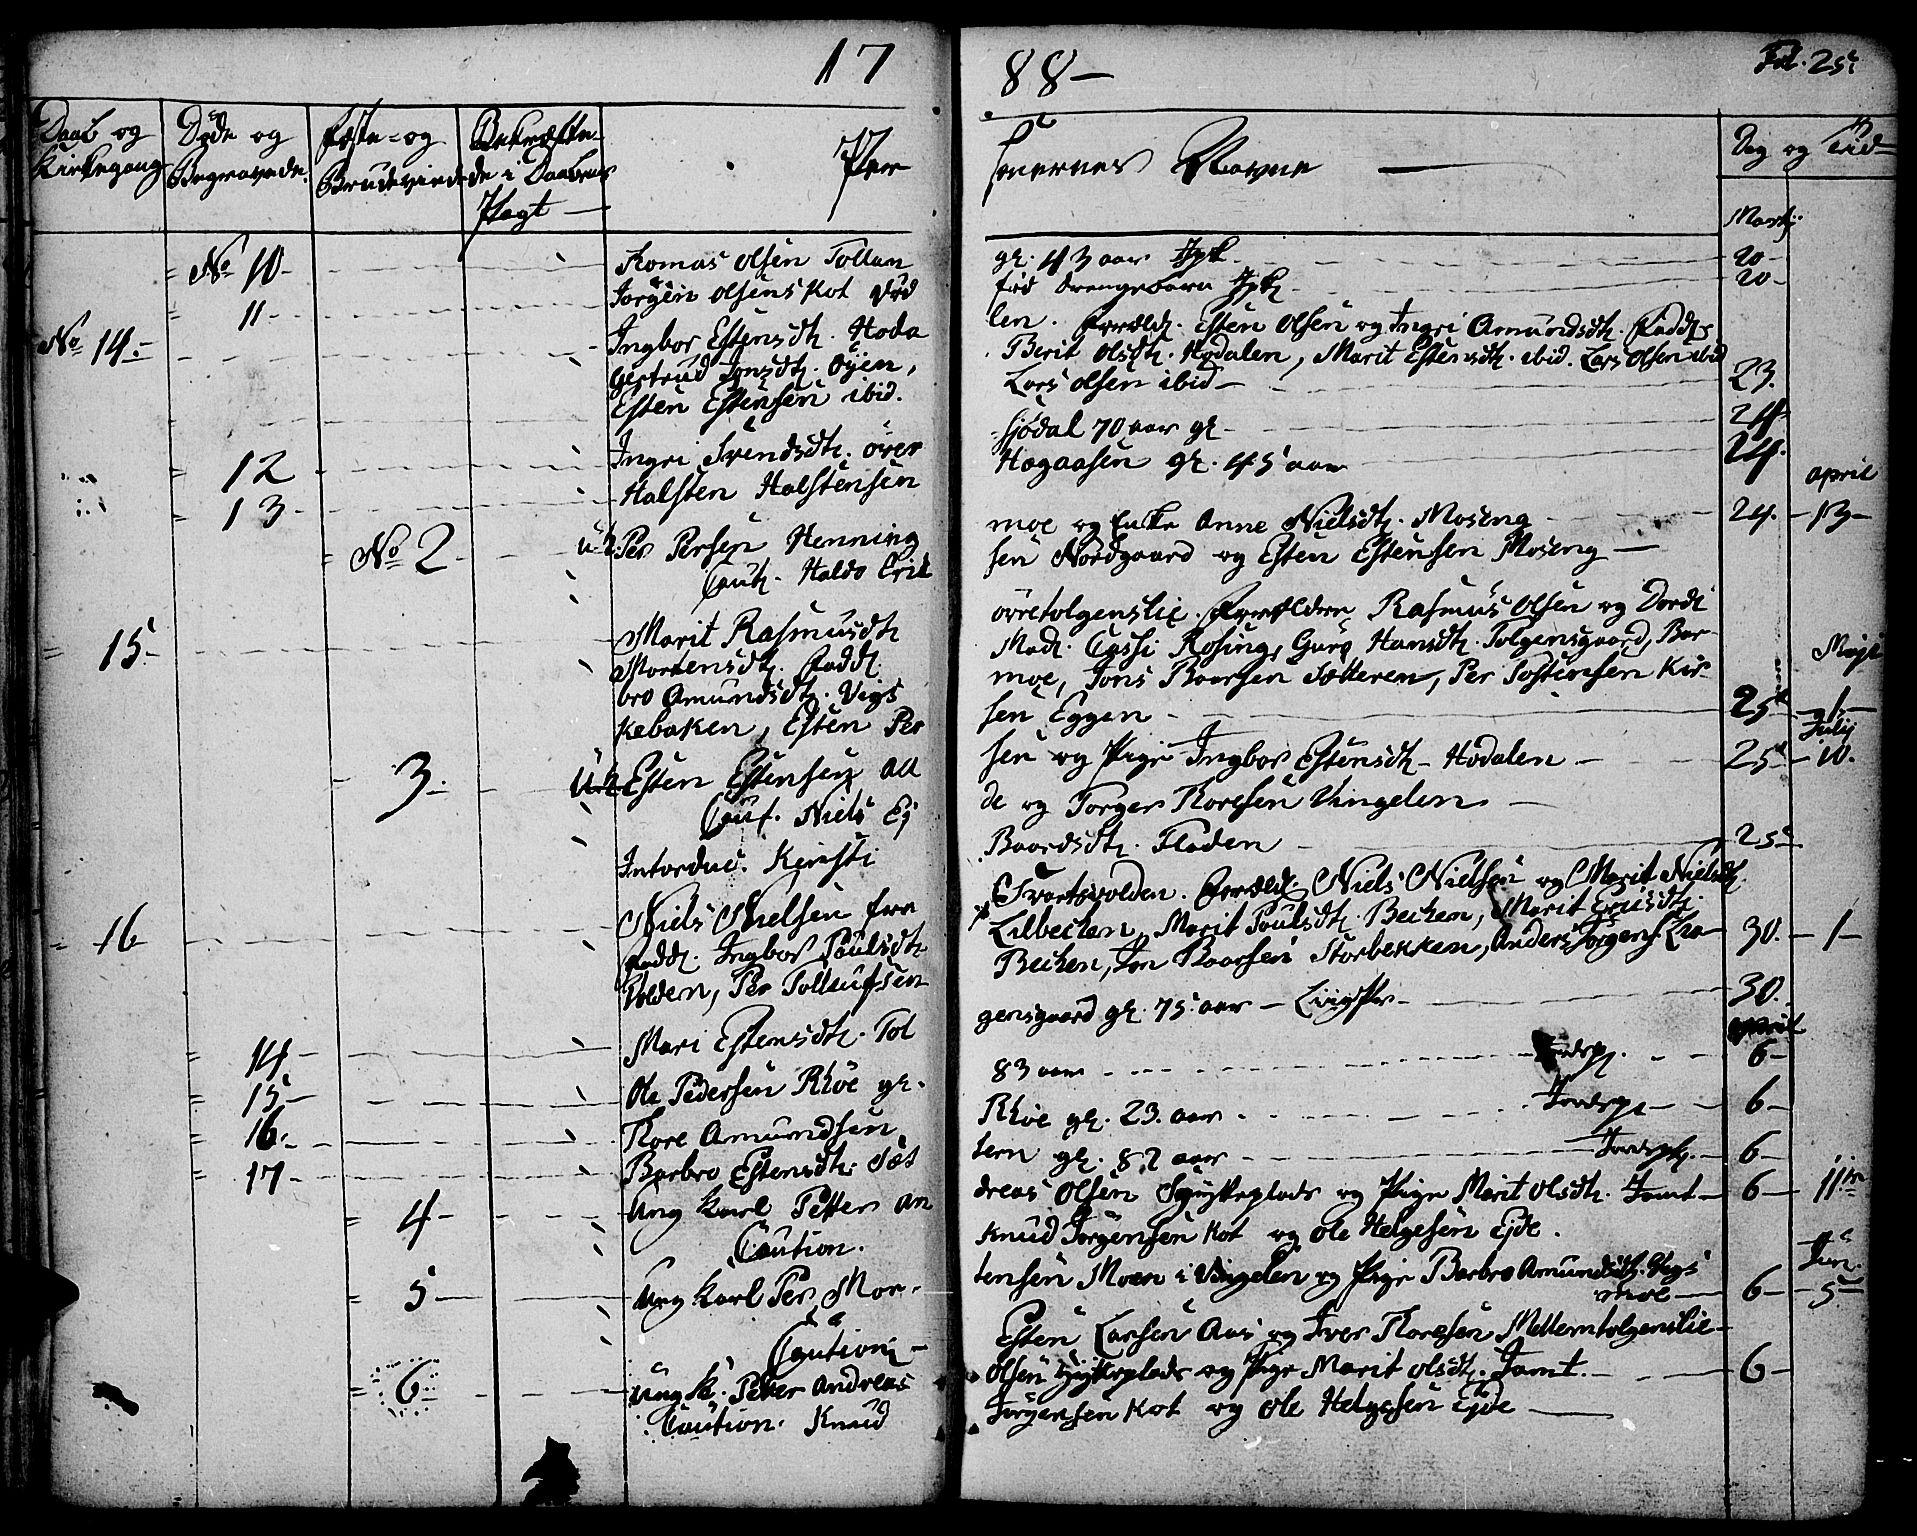 17 88-
Fol. 25.
Daab og Kirkegang
Døde og Begravede.
Fæste- og Brudeviede
Bekræftede i Daabens Pagt
Personernes Navne
Dag og Tid
Martj.
No 10 - Tomas Olsen Tollan gl. 43 aar 20-
11 - Jørgen Olsens Kot død fød Drengebarn 20-
No 14. Ingbor Estensdtr. Hodalen. Foræld. Esten Olsen og Ingri Amundsdtr. Fadd.
Gertrud Jonsdtr. Øyen, Berit Olsdtr. Hodalen, Marit Estensdtr. ibid. Lars Olsen ibid
Esten Estensen ibid. Lars Olsen ibid - 23.
12 Ingri Svendsdtr. øversjødal 70 aar gl - 24-
13 - Halsten Halstensen Hogaasen gl. 45 aar 24.
April
No 2 - U.K. Per Persen Henningmoe og Enke Anne Nielsdtr. Moseng 24. - 13 -
Caut. Haldo Eriksen Nordgaard og Esten Estensen Moseng -
15 - Marit Rasmusdtr øvretolgenslie. Forældre Rasmus Olsen og Dordi
Mortensdtr. Fadd. Mad. Cassi Rosing, Guro Hansdtr. Tolgensgaard, Barbro
Amundsdtr. Vigsmoe, Jons Baarsen Sætteren, Per Tostensen Kir-
Maji
kebaken, Esten Persen Eggen - 25 - 1 -
July
3. U.K. Esten Estensen Aasen og Pige Ingbor Estensdtr - Hodalen - 25 - 10.
Caut. Niels Ejde og Torger Toresen Vingelen -
Introduc. Kirsti Baardsdtr. Floden - 25
16 Niels Nielsen fra Svartsvolden. Foræld. Niels Nielsen og Marit Nielsdtr
Fadd. Ingbor Paulsdtr. Lilbecken, Marit Paulsdtr. Becken, Marit
Volden, Per Tollufsen Becken, Jon Baarsen Storbekken, Anders 30. - 1 -
14 - Mari Estensdtr. Tolgensgaard gl. 75 aar - 30.
April
15 - Ole Pedersen Rhoe gl. 83 aar Jordsp. 6 -
16. - Tore Amundsen Rhoe gl. 23. aar Jordsp. - 6 -
17 - Barbro Estensdtr. Sættern gl. 82 aar Jordsp. - 6 -
4 - Ung Karl Petter Andreas Olsen og Pige Marit Olsdtr. Tamt - 6 - 11te
Caution. Knud Jørgensen Kot og Ole Helgesen Ejde.
Jun.
5 - Ung Karl Per Mortensen Moen i Vingelen og Pige Barbro Amundsdtr. Vigsmoe - 6 - 5 -
Caution - Esten Larsen Aas og Iver Toresen Mellemtolgenslie -
6 - Ung K. Petter Andreas Olsen og Pige Marit Olsdtr. Tamt. - 6 -
Caution. Knud Jørgensen Kot og Ole Helgesen Ejde -